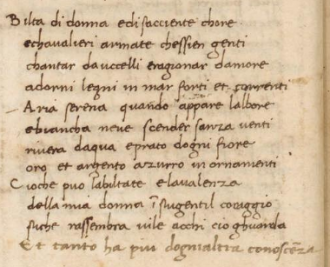 Bilta di donna edisacciente chore
echavalieri armate chessien genti
chantar dauccelli eragionar damore
adorni legni in mar forti et correnti
Aria serena quando appare lalbore
ebiancha neve scender sanza venti
rivera daqua eprato dogni fiore
oro et argento azurro in ornamenti
Cioche puo labiltate elavalenza
della mia donna insugentil coraggio
suche rassembra vile acchi cio ghuarda
Et tanto ha piu dognialtra conoscẽza